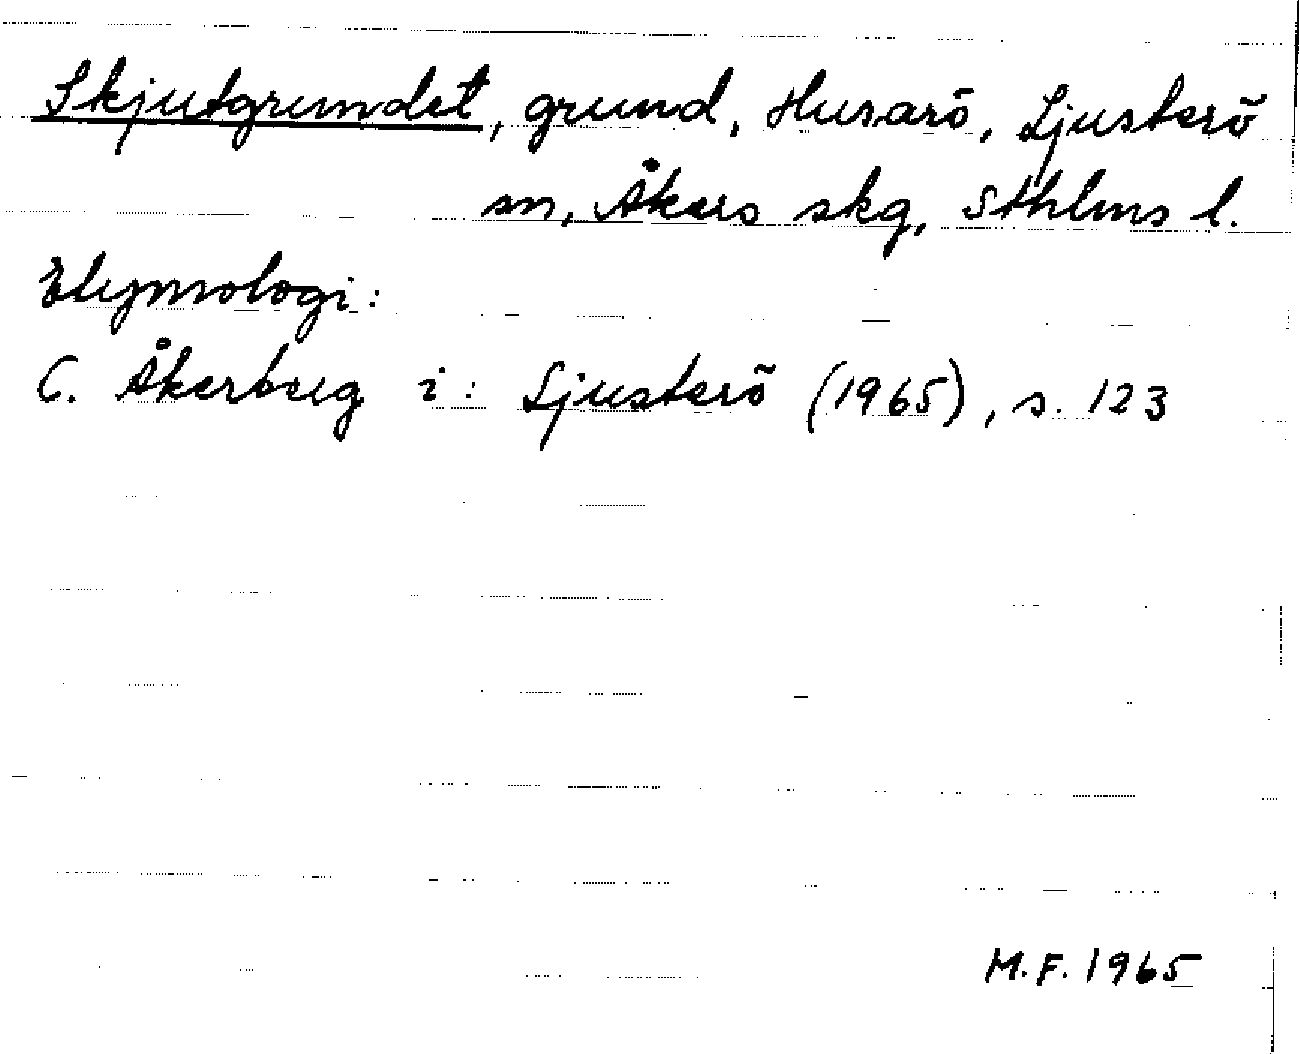 Skjutgrundet, grund, Husarö, Ljusterö
sn, Åkers skg, Sthlms l.
Etymologi:
C. Åkerberg i: Ljusterö (1965), s. 123
M.F. 1965